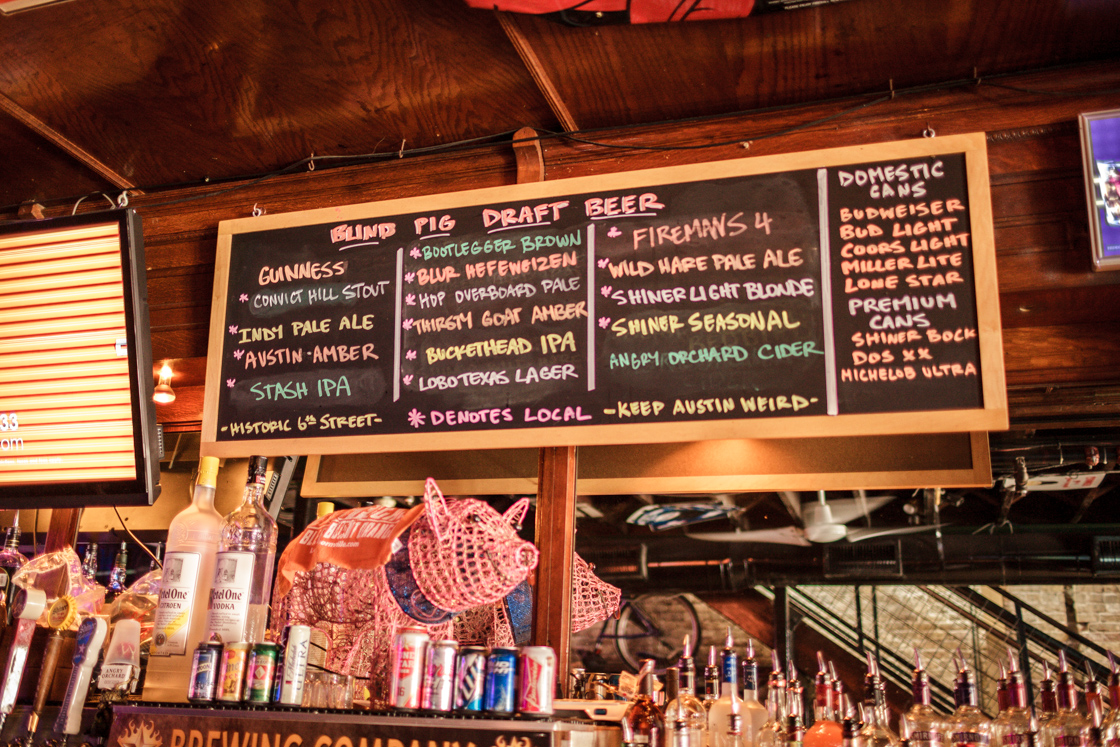 BLIND PIG DRAFT BEER
GUINNESS
* CONVICT HILL STOUT
* INDY PALE ALE
* AUSTIN AMBER
* STASH IPA
- HISTORIC 6th STREET -
* BOOTLEGGER BROWN
* BLUR HEFEWEIZEN
* HOP OVERBOARD PALE
* THIRSTY GOAT AMBER
* BUCKETHEAD IPA
* LOBO TEXAS LAGER
* DENOTES LOCAL
* FIREMANS 4
* WILD HARE PALE ALE
* SHINER LIGHT BLONDE
* SHINER SEASONAL
ANGRY ORCHARD CIDER
- KEEP AUSTIN WEIRD -
DOMESTIC
CANS
BUDWEISER
BUD LIGHT
COORS LIGHT
MILLER LITE
LONE STAR
PREMIUM
CANS
SHINER BOCK
DOS XX
MICHELOB ULTRA
33
om
Ketel One
CITROEN
Ketel One
VODKA
ANGRY
ORCHARD
ULTRA
BREWING COMPANY